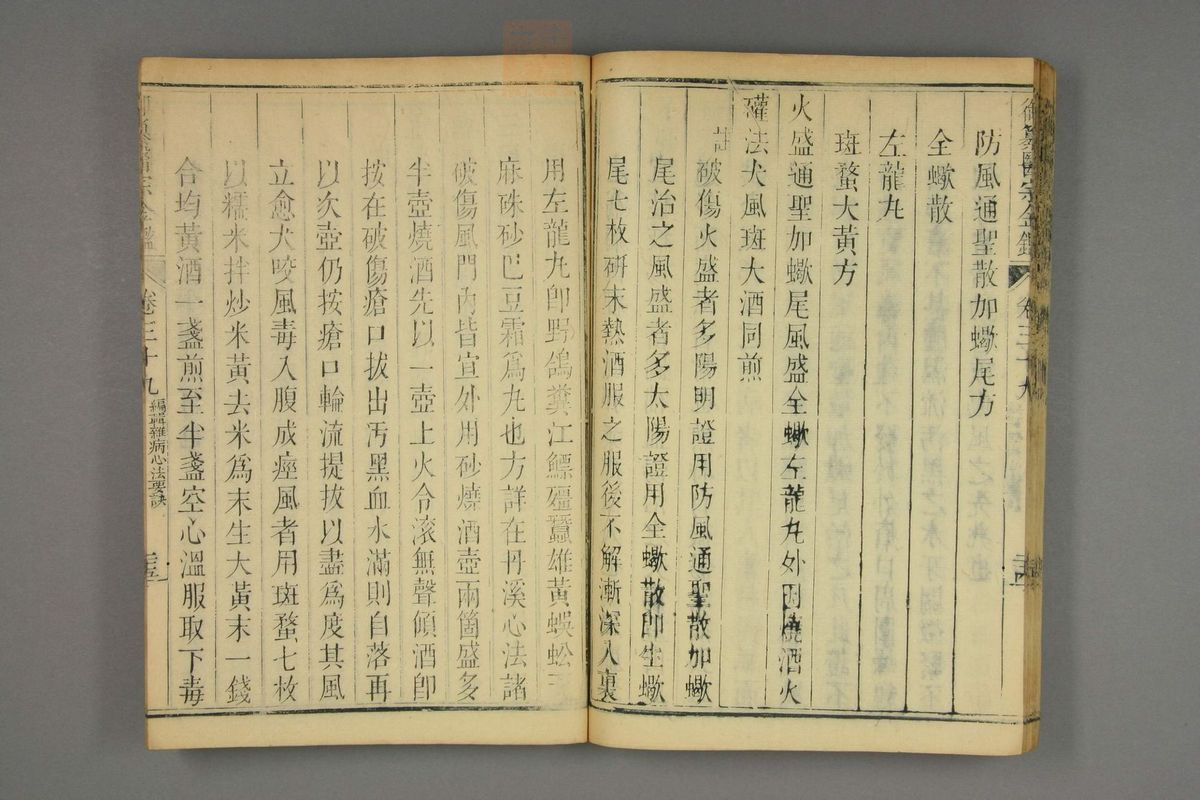 御纂醫宗金鑑 卷三十九
防風通聖散加蠍尾方
全蠍散
左龍丸
斑蝥大黃方
火盛通聖加蠍尾風盛全蠍左龍丸外因燒酒火
罐法犬風斑大酒同煎
註 破傷火盛者多陽明證用防風通聖散加蠍
尾治之風盛者多太陽證用全蠍散卽生蠍
尾七枚硏末熱酒服之服後不解漸深入裏
用左龍丸卽野鴿糞江鰾殭蠶雄黃蜈蚣
麻硃砂巴豆霜爲丸也方詳在丹溪心法諸
破傷風門內皆宜外用砂燒酒壺兩箇盛多
半壺燒酒先以一壺上火令滾無聲傾酒卽
按在破傷瘡口拔出汚黑血水滿則自落再
以次壺仍按瘡口輪流提拔以盡爲度其風
立愈犬咬風毒入腹成痙風者用斑蝥七枚
以糯米拌炒米黃去米爲末生大黃末一錢
合均黃酒一盞煎至半盞空心溫服取下毒
卷三十九 編輯雜病心法要訣